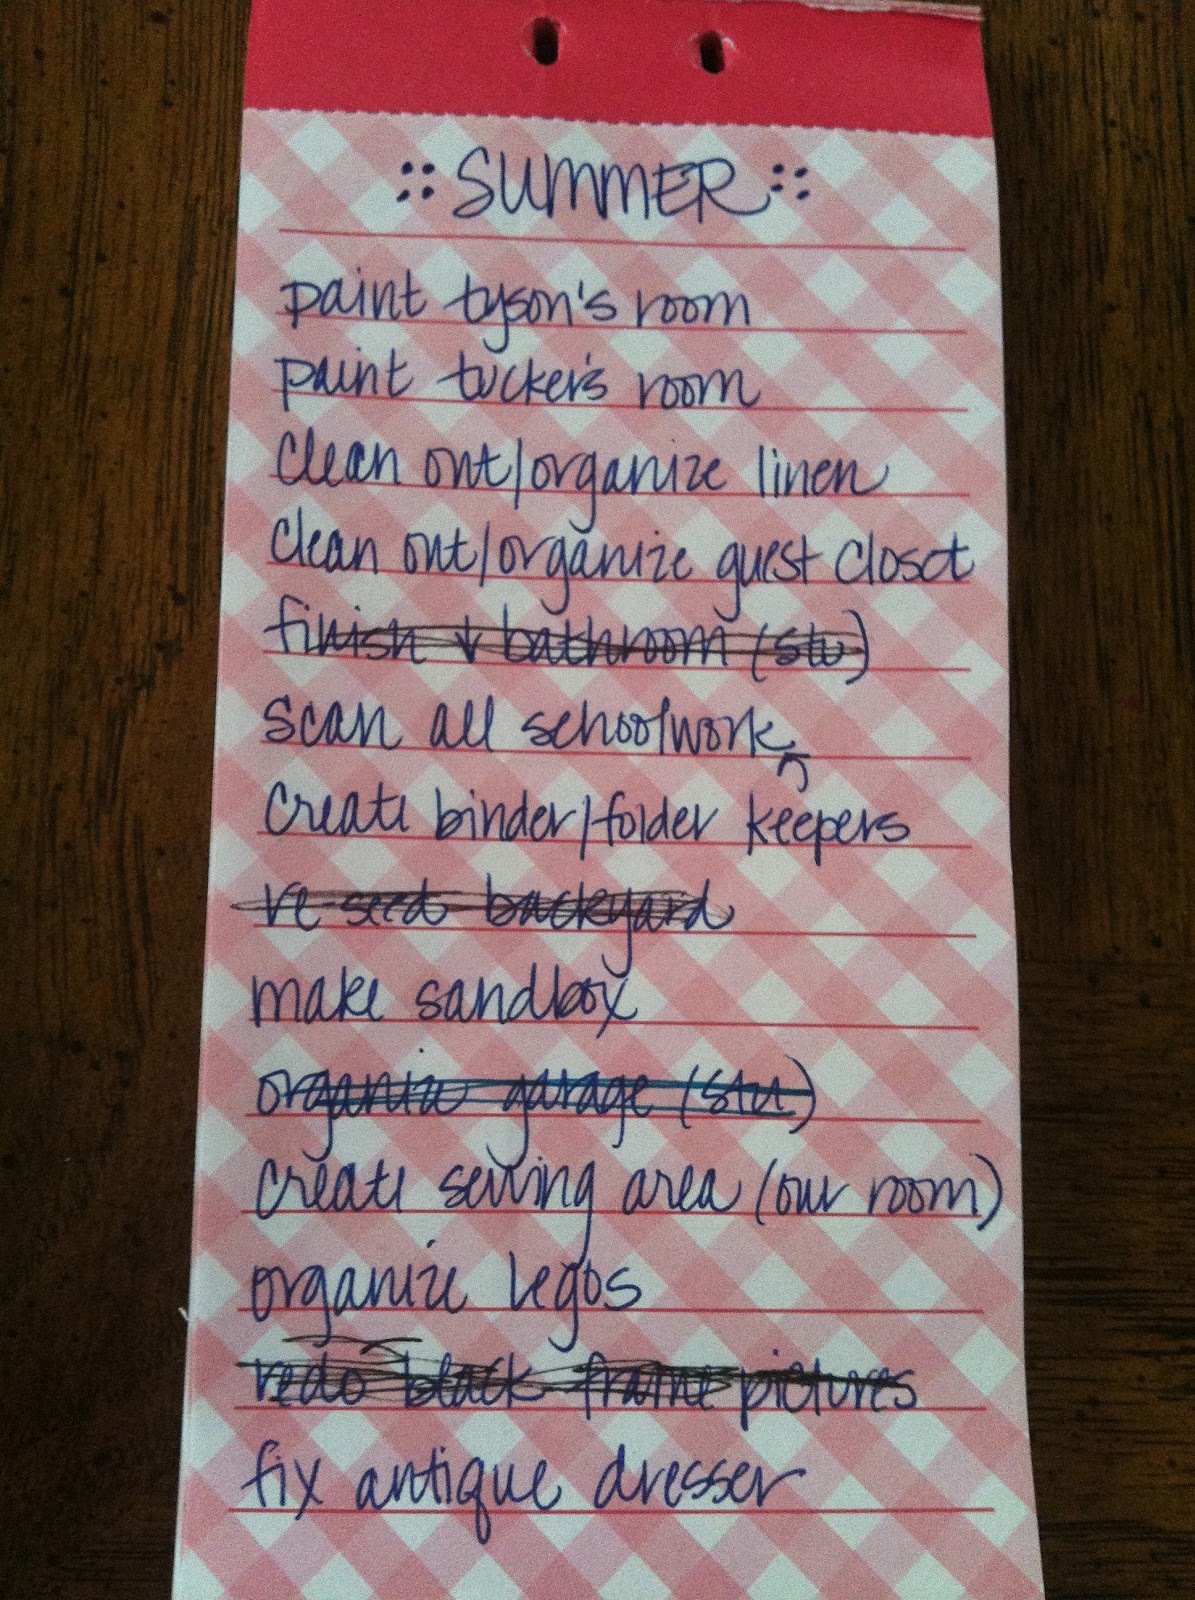 :: SUMMER ::
paint tyson's room
paint tucker's room
clean out/organize linen
clean out/organize guest closet
finish ↓ bathroom (stu)
scan all schoolwork
create binder/folder keepers
re seed backyard
make sandbox
organize garage (stu)
create sewing area (our room)
organize legos
redo black frame pictures
fix antique dresser